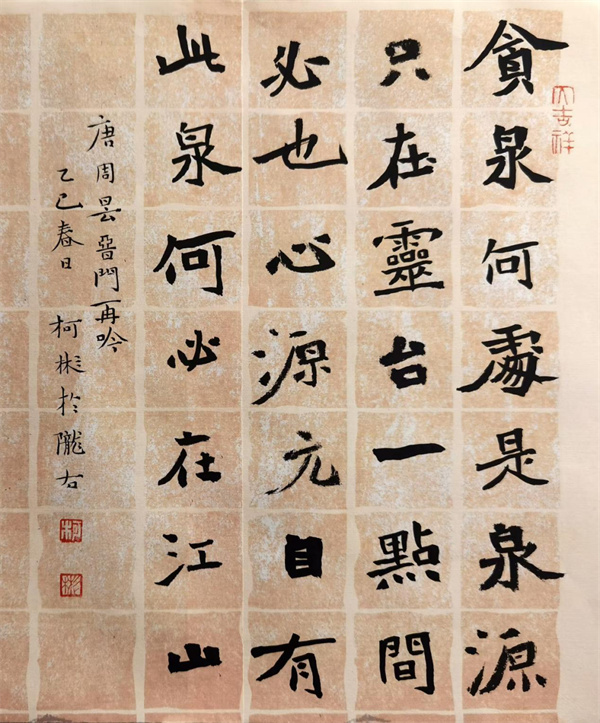 大吉祥
貪泉何處是泉源
只在靈台一點間
必也心源元自有
此泉何必在江山
唐周曇晉門再吟
乙巳春日柯彬於隴右
柯
彬